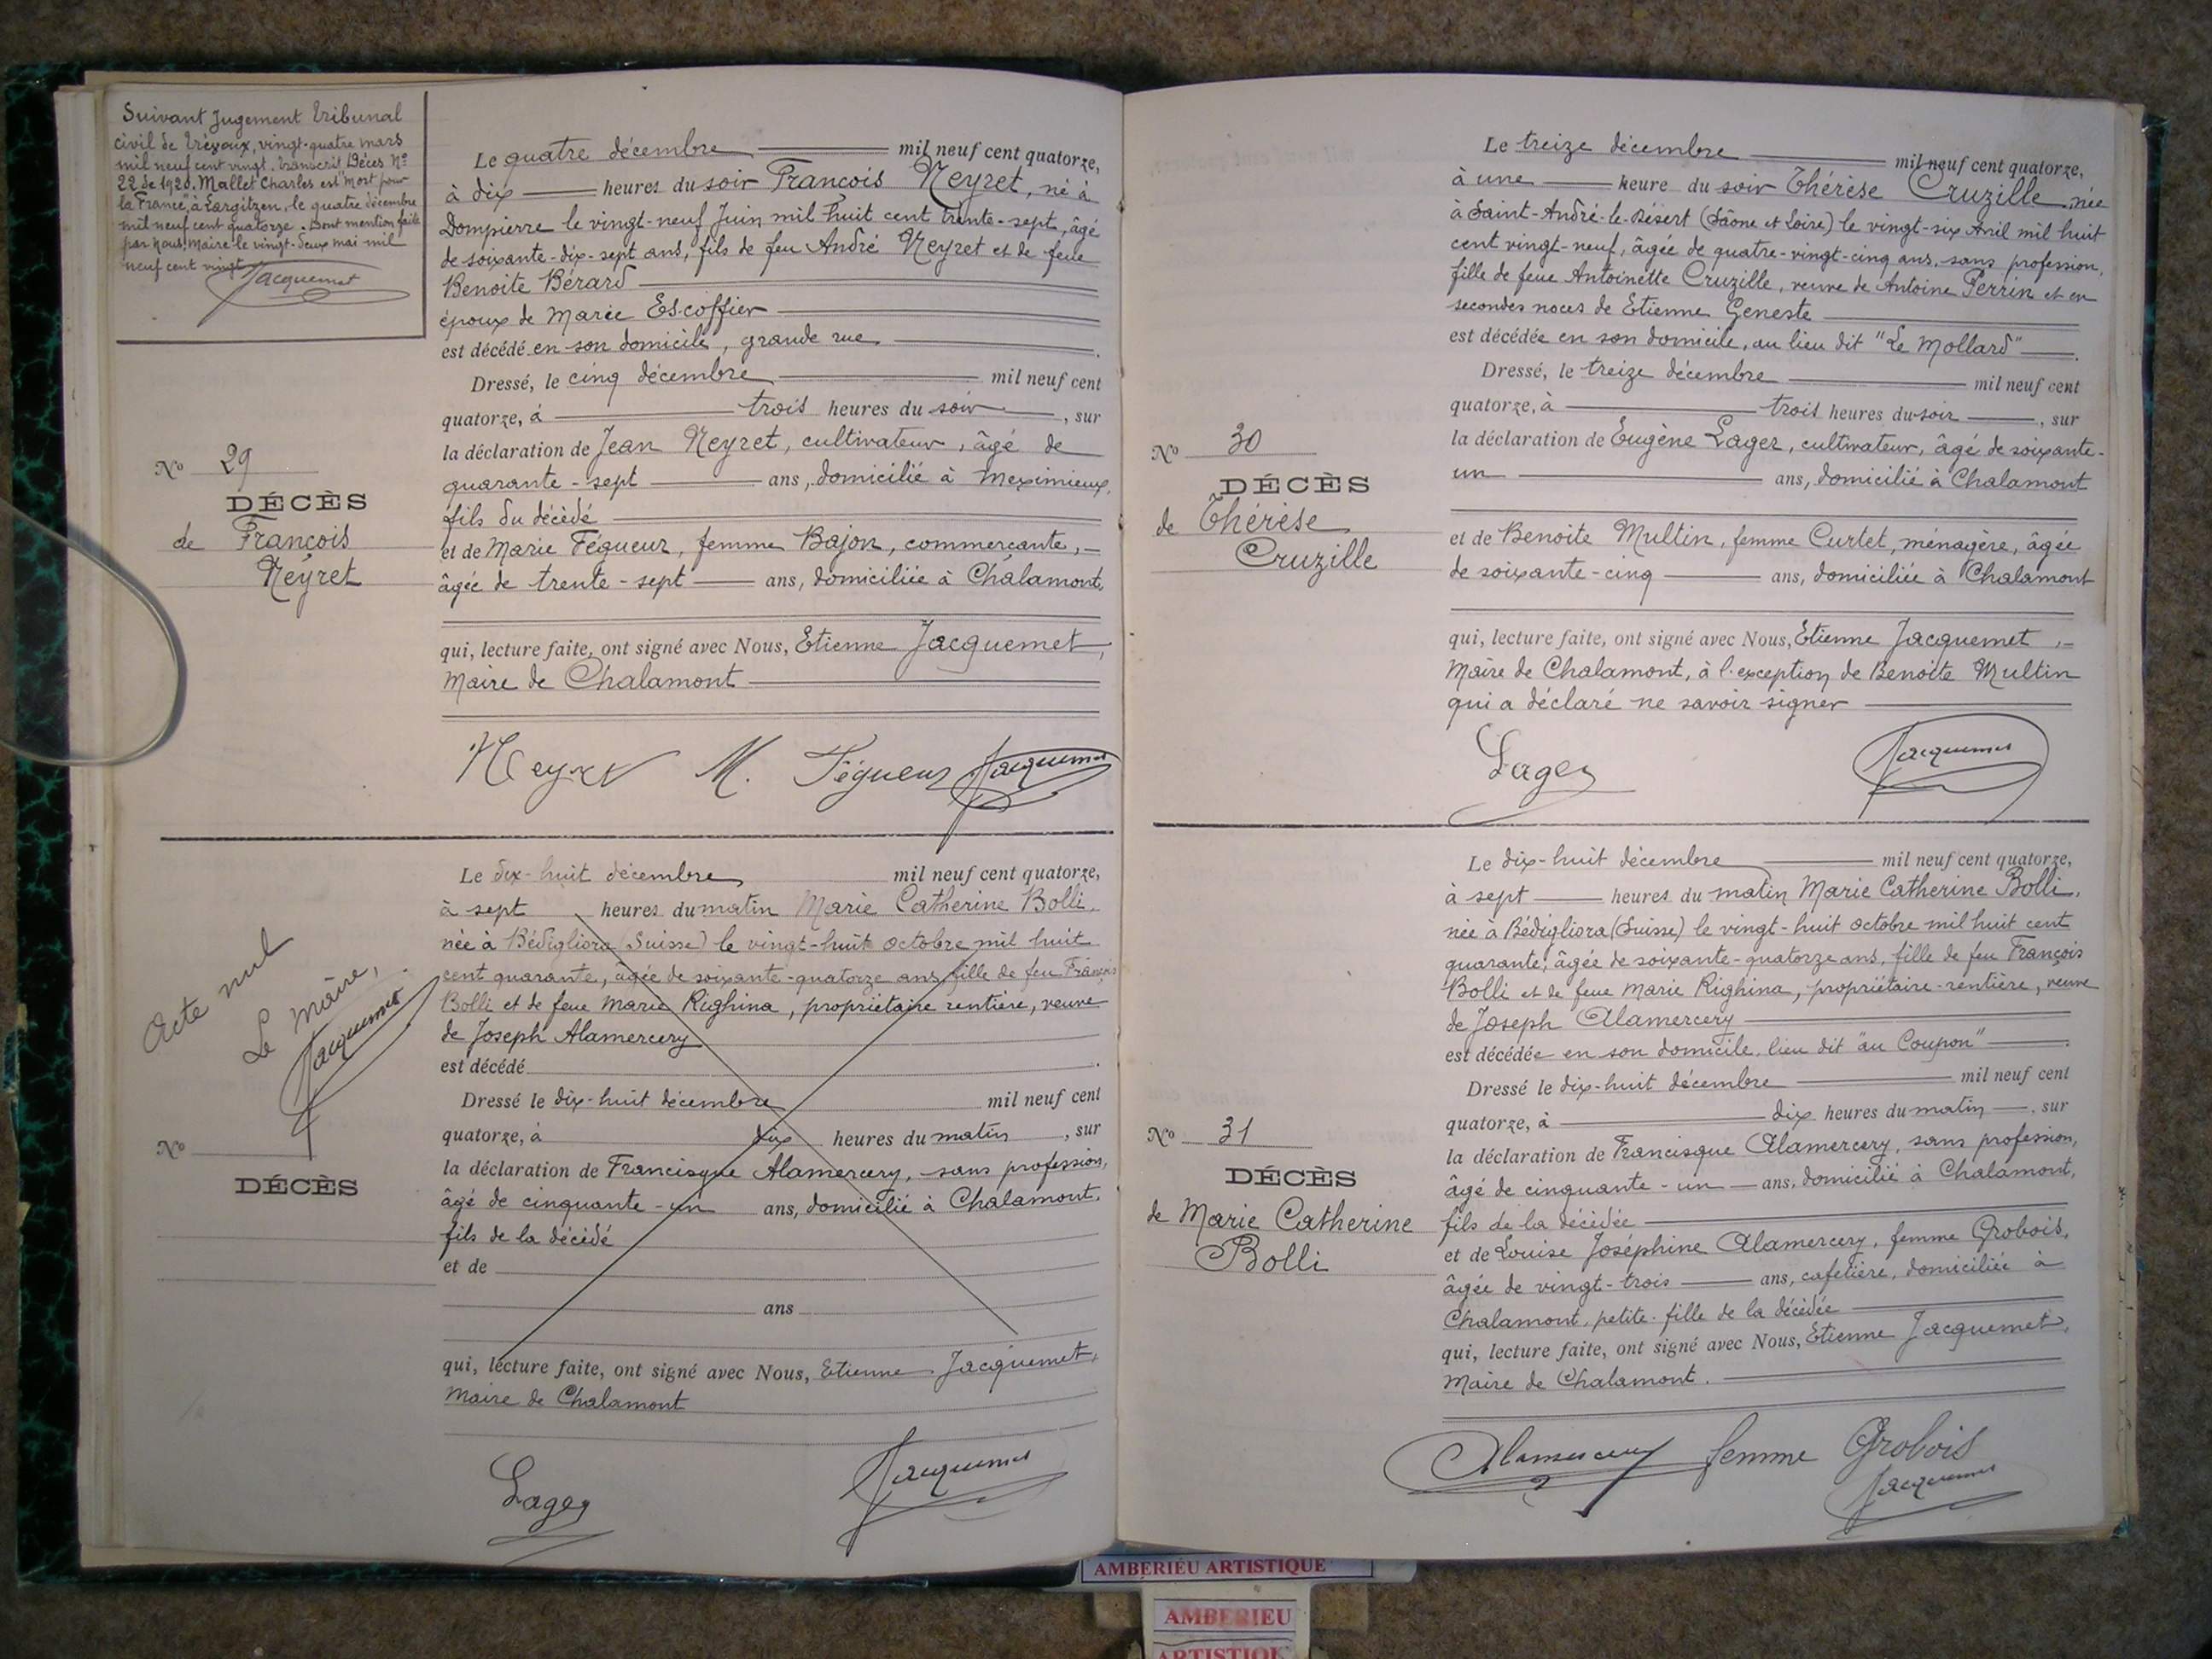 Suivant Jugement Tribunal
civil de Trévoux, vingt-quatre mars
mil neuf cent vingt, transcrit Décès No
22 de 1920. Mallet Charles est "mort pour
la France" à Largitzen, le quatre décembre
mil neuf cent quatorze. Dont mention faite
par Nous, Maire le vingt-deux mai mil
neuf cent vingt
Jacquemet
No 29
DÉCÈS
de François
Neyret
Le quatre décembre mil neuf cent quatorze,
à dix heures du soir François Neyret, né à
Dompierre le vingt-neuf Juin mil huit cent trente-sept, âgé
de soixante-dix-sept ans, fils de feu André Neyret et de feue
Benoite Bérard
époux de Marie Escoffier
est décédé en son domicile, grande rue.
Dressé, le cinq décembre mil neuf cent
quatorze, à trois heures du soir, sur
la déclaration de Jean Neyret, cultivateur, âgé de
quarante-sept ans, domicilié à Meximieux,
fils du décédé
et de Marie Fégueur, femme Bajon, commerçante,
âgée de trente-sept ans, domiciliée à Chalamont,
qui, lecture faite, ont signé avec Nous, Etienne Jacquemet,
Maire de Chalamont
Neyret M. Fégueur Jacquemet
Acte nul
Le Maire,
Jacquemet
No
DÉCÈS
Le dix-huit décembre mil neuf cent quatorze,
à sept heures du matin Marie Catherine Bolli,
née à Bédigliora (Suisse) le vingt-huit octobre mil huit
cent quarante, âgée de soixante-quatorze ans, fille de feu François
Bolli et de feue Marie Righina, propriétaire rentière, veuve
de Joseph Alamercery
est décédé
Dressé le dix-huit décembre mil neuf cent
quatorze, à dix heures du matin, sur
la déclaration de Francisque Alamercery, sans profession,
âgé de cinquante-un ans, domicilié à Chalamont,
fils de la décédé
et de
ans
qui, lecture faite, ont signé avec Nous, Etienne Jacquemet,
Maire de Chalamont
Lager Jacquemet
No 30
DÉCÈS
de Thérèse
Cruzille
Le treize décembre mil neuf cent quatorze,
à une heure du soir Thérèse Cruzille, née
à Saint-André-le-Désert (Saône et Loire) le vingt-six Avril mil huit
cent vingt-neuf, âgée de quatre-vingt-cinq ans, sans profession,
fille de feue Antoinette Cruzille, veuve de Antoine Perrin et en
secondes noces de Etienne Geneste
est décédée en son domicile, au lieu dit "Le Mollard".
Dressé, le treize décembre mil neuf cent
quatorze, à trois heures du soir, sur
la déclaration de Eugène Lager, cultivateur, âgé de soixante-
un ans, domicilié à Chalamont
et de Benoite Multin, femme Curtet, ménagère, âgée
de soixante-cinq ans, domiciliée à Chalamont
qui, lecture faite, ont signé avec Nous, Etienne Jacquemet,
Maire de Chalamont, à l'exception de Benoite Multin
qui a déclaré ne savoir signer
Lager Jacquemet
No 31
DÉCÈS
de Marie Catherine
Bolli
Le dix-huit décembre mil neuf cent quatorze,
à sept heures du matin Marie Catherine Bolli,
née à Bédigliora (Suisse) le vingt-huit octobre mil huit cent
quarante, âgée de soixante-quatorze ans, fille de feu François
Bolli et de feue Marie Righina, propriétaire-rentière, veuve
de Joseph Alamercery
est décédée en son domicile, lieu dit "au Coupon".
Dressé le dix-huit décembre mil neuf cent
quatorze, à dix heures du matin, sur
la déclaration de Francisque Alamercery, sans profession,
âgé de cinquante-un ans, domicilié à Chalamont,
fils de la décédée
et de Louise Joséphine Alamercery, femme Grobois,
âgée de vingt-trois ans, cafetière, domiciliée à
Chalamont, petite-fille de la décédée
qui, lecture faite, ont signé avec Nous, Etienne Jacquemet,
Maire de Chalamont.
Alamercery femme Grobois
Jacquemet
AMBERIEU ARTISTIQUE
AMBERIEU
ARTISTIQUE